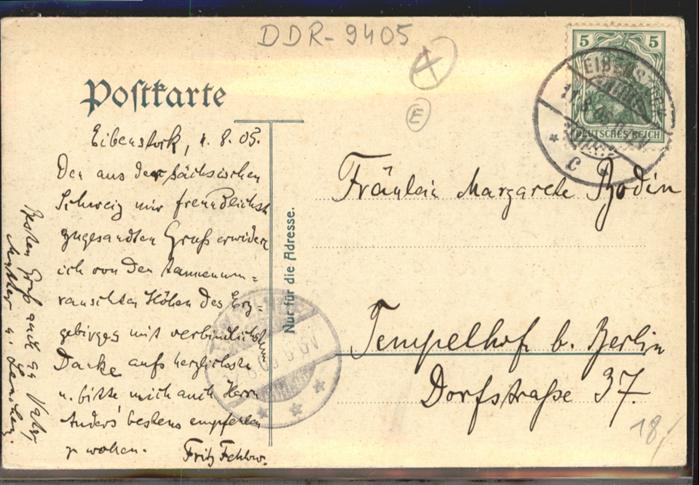 DDR-9405
E
Postkarte
5 5
DEUTSCHES REICH
EIBENSTOCK
C
Eibenstock, 1. 8. 05.
Den aus der sächsischen
Schweiz mir freundlichst
zugesandten Gruß erwidere
ich von den tannenum-
rauschten Höhen des Erz-
gebirges mit verbindlichstem
Danke aufs herzlichste
u. bitte mich auch Herrn
Anders bestens empfehlen
z. wollen.
Besten Gruß auch an Vater,
Mutter u.
Nur für die Adresse.
Fräulein Margarete Bodin
Tempelhof b. Berlin
Dorfstraße 37.
18,-